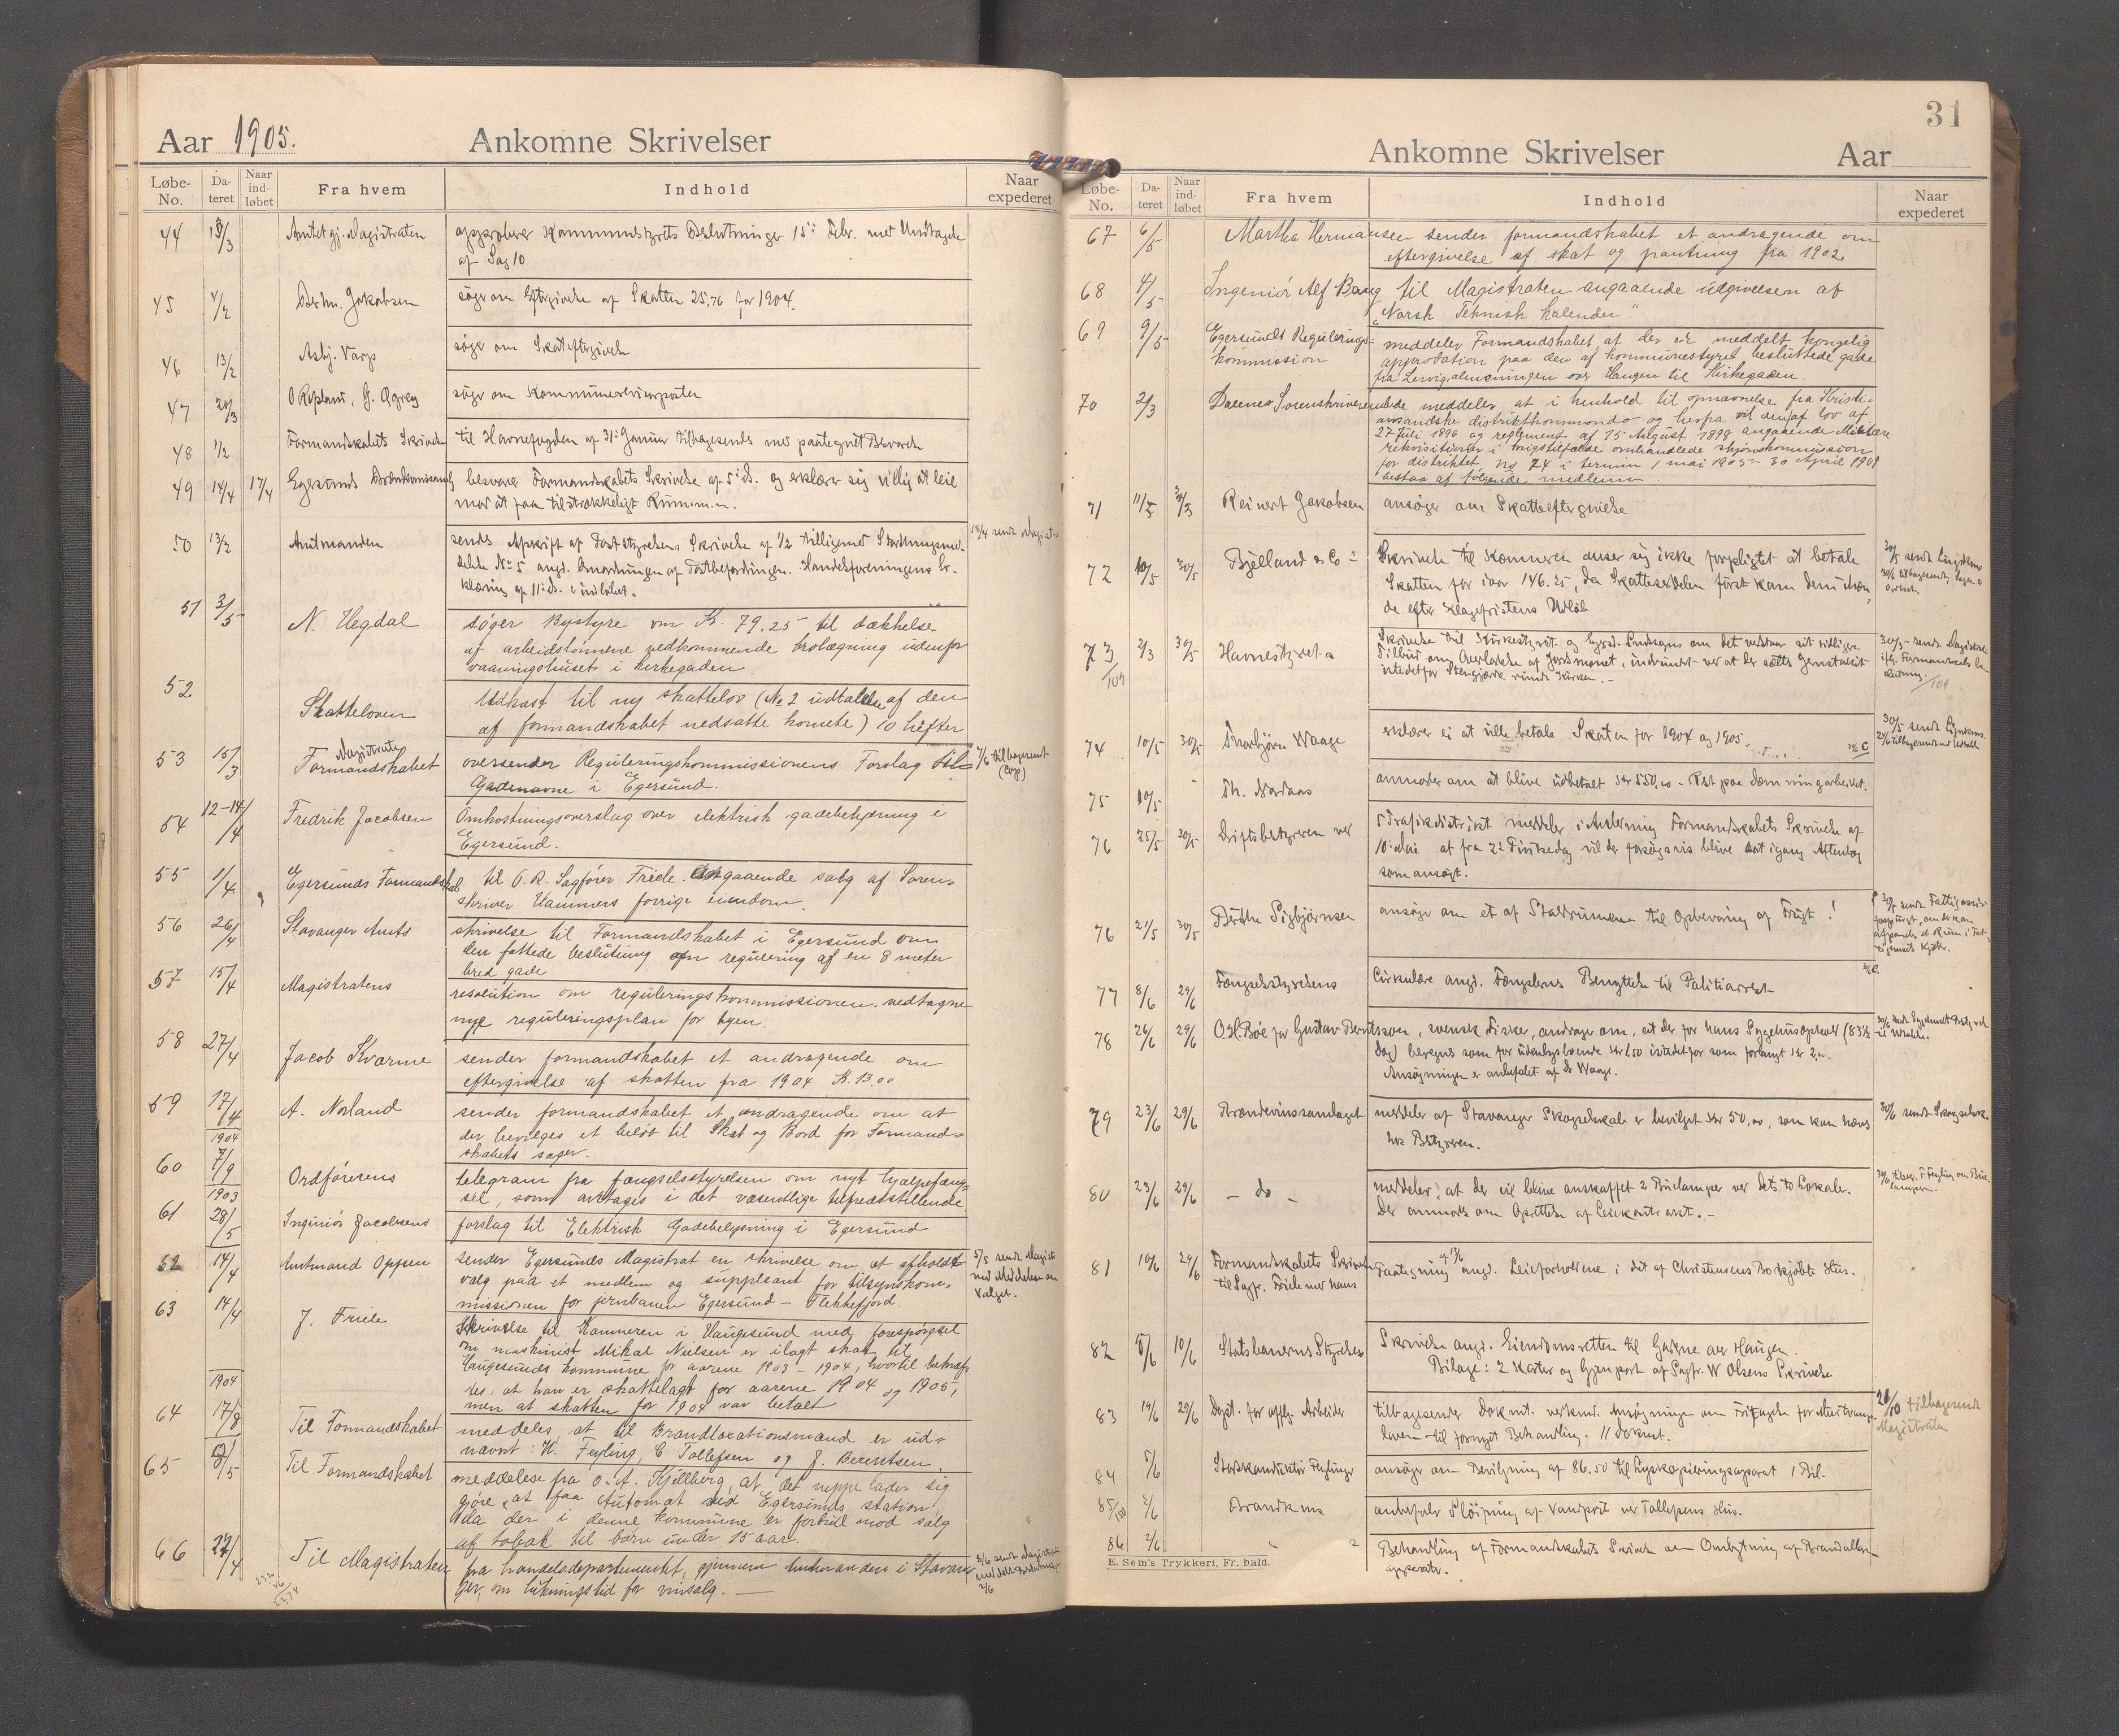 Aar 1905.
Ankomne Skrivelser
Løbe-No. Dateret Naar indløbet Fra hvem Indhold Naar expederet
44 13/3 Amtet gj. Magistraten approberer Kommunestyrets Beslutninger 15de Febr. med Undtagelse
af Sag 10
45 4/2 Jakobsen søger om Eftergivelse af Skatten 25.76 for 1904.
46 13/2 Asbj. Varp søger om Skatteftergivelse
47 20/3 søger om Kommunerevisorposten
48 1/2 Formandskabets Skrivelse til Havnefogden af 31te Januar tilbagesendes med paategnet Besvarelse
49 14/4 17/4 Egersunds besvarer Formandskabets Skrivelse af 5te ds. og erklærer sig villig at leie
mod at faa tilstrækkeligt Rum m.m.
50 13/2 Amtmanden sender Afskrift af Poststyrelsens Skrivelse af 1/2 tilligemed Stortingsmed-
delelse No 5 angd. Anordningen af Postbefordringen. Handelsforeningens Er-
klæring af 11te ds. er indløbet.
18/4 sendt Magistr.
51 3/5 N. Hegdal søger Bystyre om Kr. 79.25 til dækkelse
af arbeidslønnene vedkommende brolægning udenfor
vaaningshuset i kirkegaden.
52 Skatteloven Udkast til ny skattelov (No 2 udtalelse af den
af formandskabet nedsatte komite) 10 hefter
53 15/3 Magistraten
Formandskabet oversender Reguleringskommissionens Forslag til
Gadenavne i Egersund.
7/6 tilbagesent
54 12-14/4 Fredrik Jacobsen Omkostningsoverslag over elektrisk gadebelysning i
Egersund.
55 1/4 Egersunds Formandskab til O.R. Sagfører Friele. Angaaende salg af Soren-
skriver Hammers forrige eiendom.
56 26/4 Stavanger Amts skrivelse til Formandskabet i Egersund om
den fattede beslutning om regulering af en 8 meter
bred gade
57 15/4 Magistratens resolution om reguleringskommissionen vedtagne
nye reguleringsplan for byen.
58 27/4 Jacob Kvarme sender formandskabet et andragende om
eftergivelse af skatten fra 1904 K. 13.00
59 17/4 A. Norland sender formandskabet et andragende om at
der bevilges et beløb til Skab og Bord for Formand-
skabets sager.
60 1904 7/9 Ordførerens telegram fra fængselsstyrelsen om nyt hjælpefæng-
sel, som antages i det væsentlige tilfredsstillende
61 1903 28/5 Ingeniør Jacobsens forslag til Elektrisk Gadebelysning i Egersund
62 14/4 Amtmand Oppen sender Egersunds Magistrat en skrivelse om at afholdt
valg paa et medlem og suppleant for tilsynskom-
missionen for jernbanen Egersund - Flekkefjord
5/5 sendt Magistr.
med Meddelelse om
Valget.
63 14/4 J. Friele Skrivelse til Kæmneren i Haugesund med forespørgsel
om maskinist Mikal Nielsen er ilagt skat til
Haugesunds kommune for aarene 1903 - 1904, hvortil bekræf-
tes, at han er skattelagt for aarene 1904 og 1905,
men at skatten for 1904 var betalt
64 1904 17/8 Til Formandskabet meddeles, at til Brandtaxationsmænd er ud-
nævnt: H. Feyling, C Tollefsen og J. Berentsen.
65 Til Formandskabet meddelelse fra O. A. Kjellberg, at det neppe lader sig
gjøre, at faa Automat ved Egersunds station,
da der i denne kommune er forbud mod salg
af tobak til børn under 15 aar.
66 27/4 Til Magistraten fra handelsdepartementet, gjennem Amtmanden i Stavan-
ger, om lukningstid for vinsalg.
31
Ankomne Skrivelser
Aar
Løbe-No. Dateret Naar indløbet Fra hvem Indhold Naar expederet
67 6/5 Martha Hermansen sender formandskabet et andragende om
eftergivelse af skat og pantning fra 1902
68 4/5 Ingeniør Alf Bang til Magistraten angaaende udgivelsen af
"Norsk Teknisk Kalender".
69 9/5 Egersunds Regulerings-
kommission meddeler Formandskabet at der er meddelt kongelig
approbation paa den af kommunestyret besluttede gade
fra Lervigalmenningen over Haugen til Kirkegaden.
70 2/3 Dalenes Sorenskriverembede meddeler at i henhold til opnævnelse fra Kristi-
anssandske distriktkommando og herfra vil den af lov af
27 Juli 1896 og reglement af 15 August 1898 angaaende Militære
rekvisitioner i krigstilfælde omhandlede skjønskommission
for distriktet No 74 i termin 1 mai 1905 - 30 April 1908
bestaa af følgende medlemmer
71 11/5 Reinert Jakobsen ansøger om Skatteeftergivelse
72 10/5 30/5 Bjelland & Co Skrivelse til Kæmneren anser sig ikke forpligtet at betale
Skatten for iaar 146.25, da Skatteseddelen først kom dem ihæn-
de efter Klagefristens Udløb
73/104 2/3 30/5 Havnestyret Skrivelse til Kirkestyret og om det vedstaar sit tidligere
Tilbud om Overladelse af Jordsmonnet, indrømmet ved at der sættes Jernstakit
istedetfor Stengjærde rundt Kirken.
30/5 sendt Magistrat
ifg. Formandskabs Be-
slutning.
/104
74 10/5 30/5 Thorbjørn Waage erklærer ei at ville betale Skatten for 1904 og 1905.
75 10/5 Th. Nordaas anmoder om at blive udbetalt Kr 550,00 - Rest paa Dæmningarbeidet.
76 25/5 30/5 Driftsbestyreren ved 5 Trafikdistrikt meddeler i Anledning Formandskabets Skrivelse af
10de Mai at fra 2den Pintsedag vil der forsøgsvis blive sat igang Aftentog
som ansøgt.
76 21/5 30/5 Berthe Sigbjørnsen ansøger om et af Staldrummene til Opbevaring af Frugt!
77 8/6 29/6 Fængselsstyrelsens Cirkulære angd. Fængslernes Benyttelse til Politiarrest
78 26/6 29/6 O.H. Bøe for Gustav Berntsson, svensk Fisker, andrager om, at der for hans Sygehusophold (83½
Dag) beregnes som for udenbysboende Kr 1,50 istedetfor som forlangt Kr 2,00.
Ansøgningen er anbefalet af Dr Waage.
79 23/6 29/6 Brændevinssamlaget meddeler at Stavanger Skogselskab er bevilget Kr 50,00, som kan hæves
hos Bestyreren.
30/6 sendt Skogselsk.
80 23/6 29/6 - do - meddeler, at der vil blive anskaffet 2 Buelamper ved dets to Lokale.
Der anmodes om Oprettelse af Leiekontrakt. -
81 10/6 29/6 Formandskabets Skrivelse
til Sagf. Friele med hans Paategning af 13/6 angd. Leieforholdene i det af Christensens Bo kjøbte Hus.
82 8/6 10/6 Statsbanernes Styrelse Skrivelse angd. Eiendomsretten til Gaderne over Haugen.
Bilage: 2 Karter og Gjenpart af Sagfr. W Olsens Skrivelse
83 19/6 29/6 Dept. for offtl. Arbeider tilbagesender Dokmt. vedkmd. Ansøgningen om Fritagelse for Murtvang-
loven til fornyet Behandling. 11 Dokmt.
26/10 tilbagesendt
Magistraten
84 5/6 ansøger om Bevilgning af 86.50 til Lyskopieringsapparat 1 Bil.
85/150 2/6 Brandkms anbefaler Sløifning af Vandpost ved Tollefsens Hus.
86 2/6 Behandling af Formandskabets Skrivelse om Ombytning af Brandallarm-
apparater.
E. Sem's Trykkeri, Fr. hald.